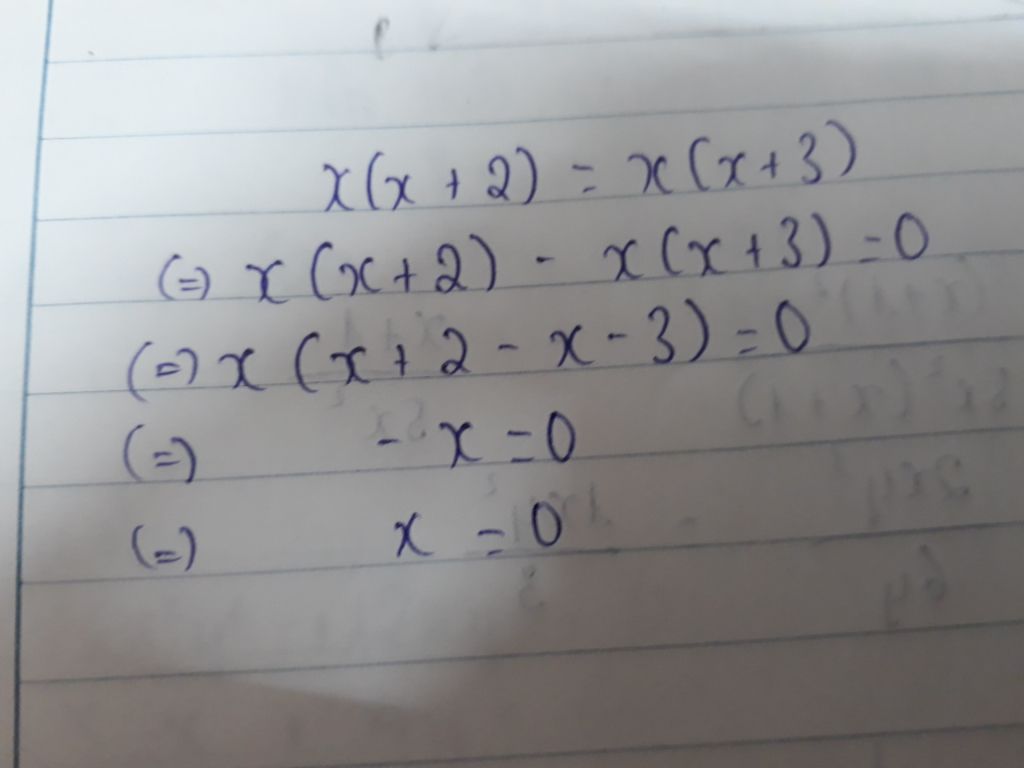 x(x+2) = x(x+3)
(=) x(x+2) - x(x+3) = 0
(=) x(x+2-x-3) = 0
(=) -x = 0
(=) x = 0